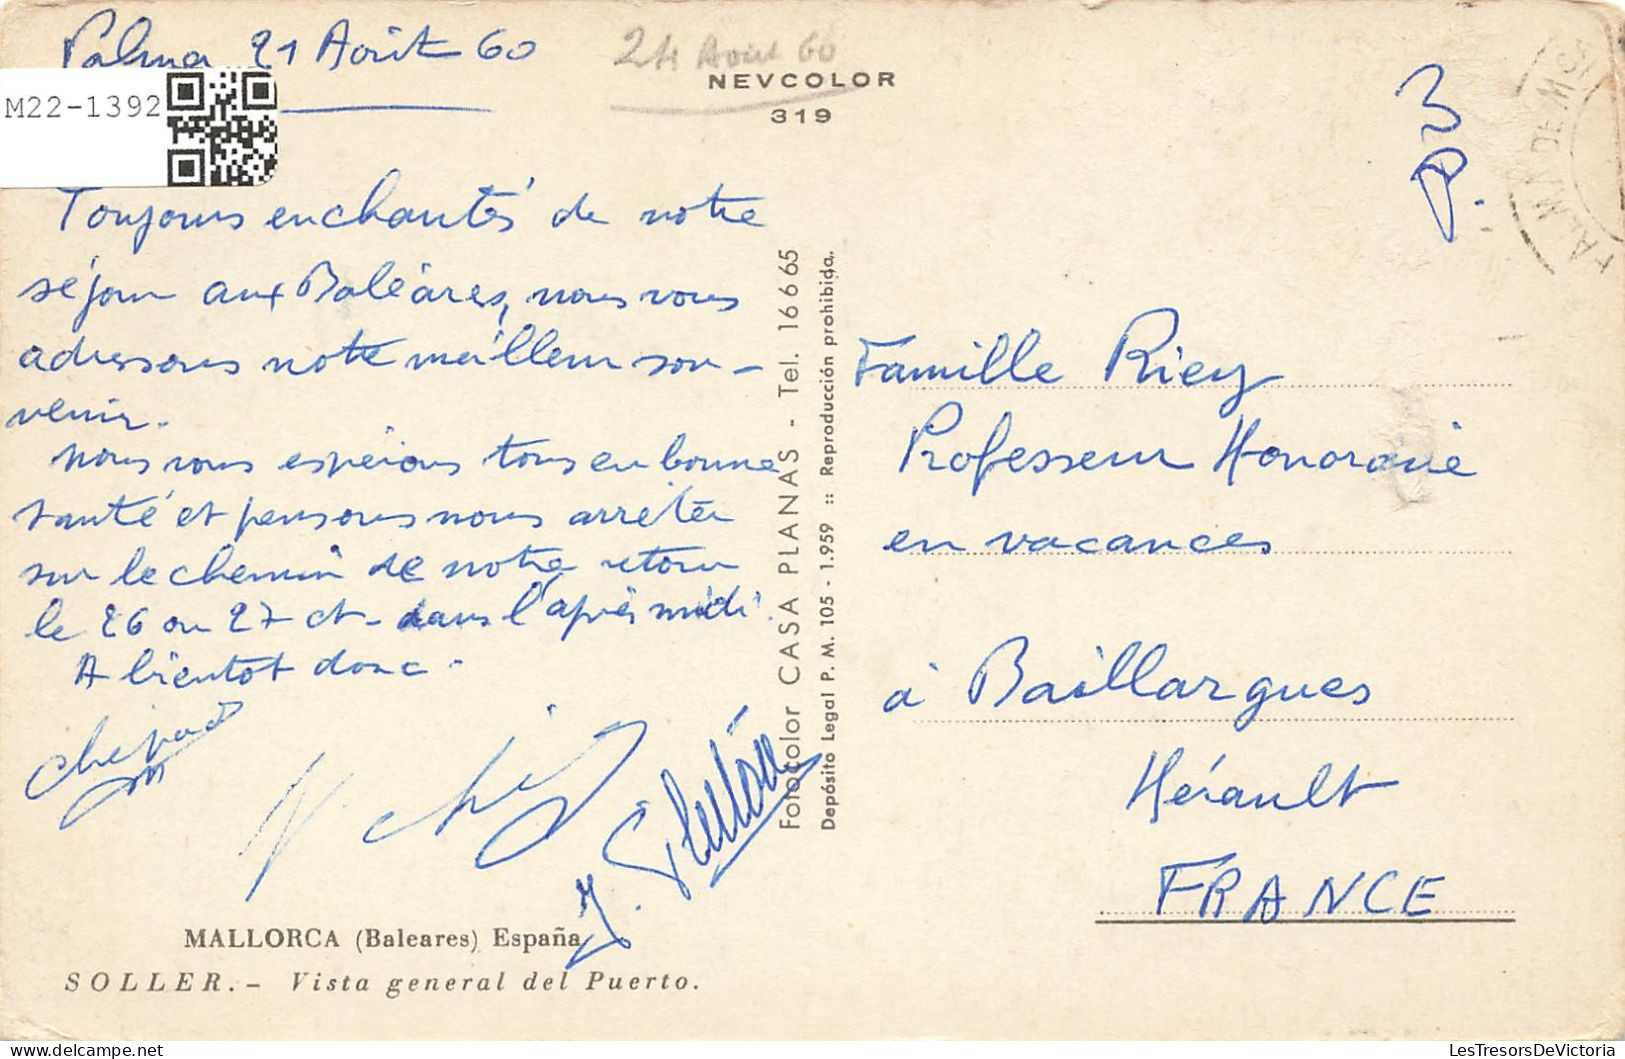 Palma 21 Août 60
24 Août 60
NEVCOLOR
319
M22-1392
3
P.
PALMA DE
Toujours enchantés de notre
séjour aux Baléares, nous vous
adressons notre meilleur sou-
venir.
Nous vous espérons tous en bonne
santé et pensons nous arrêter
sur le chemin de notre retour
le 26 ou 27 ct. dans l'après midi.
A bientôt donc.
Fotocolor CASA PLANAS - Tel. 16665
Depósito Legal P. M. 105 - 1.959 :: Reproducción prohibida.
Famille Riey
Professeur Honoraire
en vacances
à Baillargues
Hérault
FRANCE
MALLORCA (Baleares) España
SOLLER.- Vista general del Puerto.
LesTresorsDeVictoria